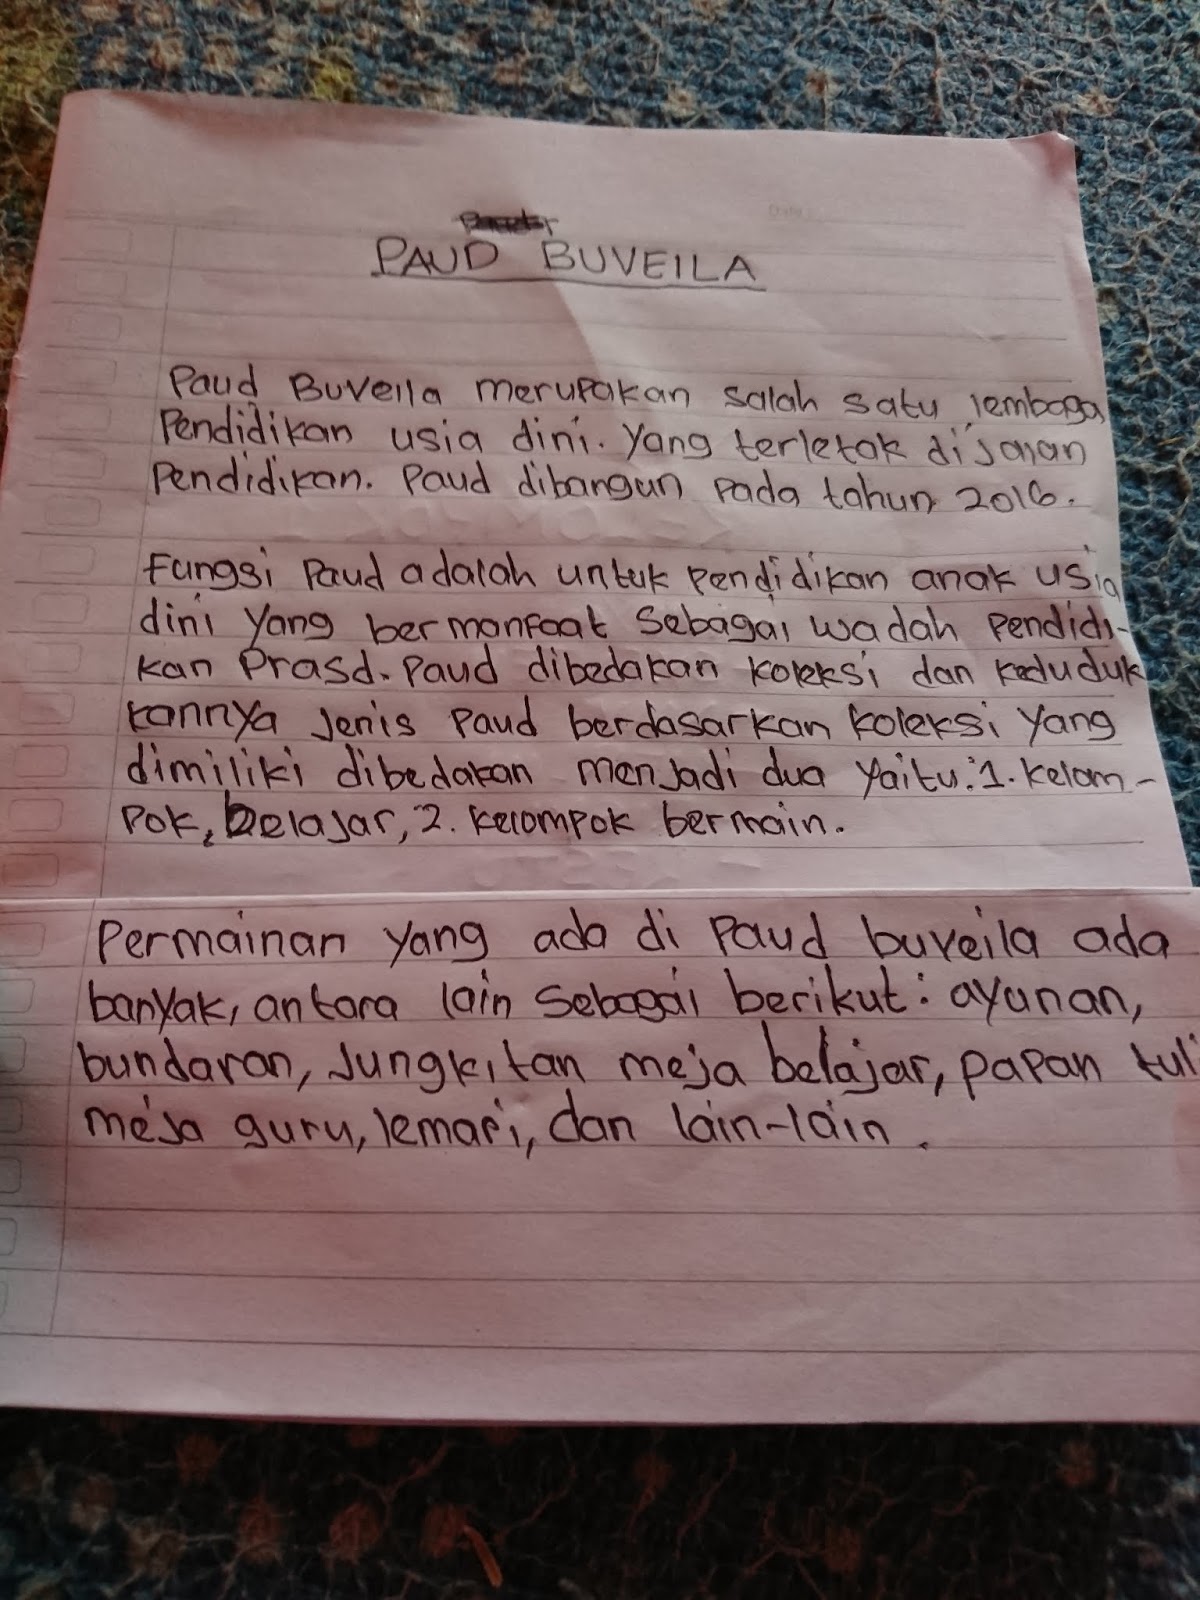 PAUD BUVEILA
Paud Buveila merupakan salah satu lembaga
Pendidikan usia dini. Yang terletak di jalan
Pendidikan. Paud dibangun pada tahun 2016.
Fungsi Paud adalah untuk pendidikan anak usia
dini yang bermanfaat sebagai wadah pendidi-
kan Prasd. Paud dibedakan koleksi dan keduduk
kannya jenis Paud berdasarkan koleksi yang
dimiliki dibedakan menjadi dua yaitu: 1. Kelom-
pok, belajar, 2. kelompok bermain.
Permainan yang ada di Paud buveila ada
banyak, antara lain sebagai berikut: ayunan,
bundaran, jungkitan meja belajar, papan tuli
meja guru, lemari, dan lain-lain.